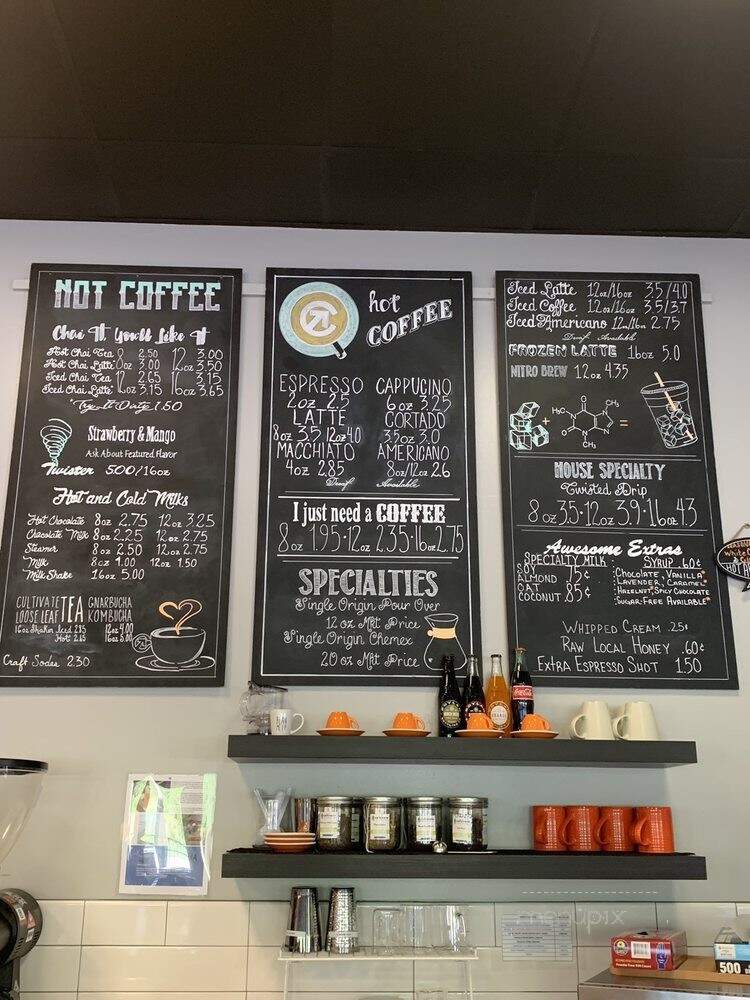 NOT COFFEE
Chai It, You'll Like It
Hot Chai Tea 8oz 2.50 12oz 3.00
Hot Chai Latte 8oz 3.00 12oz 3.50
Iced Chai Tea 12oz 2.65 16oz 3.15
Iced Chai Latte 12oz 3.15 16oz 3.65
"Try It Dirty" 1.50
Strawberry & Mango
Ask About Featured Flavor
Twister 5.00/16oz
Hot and Cold Milks
Hot Chocolate 8oz 2.75 12oz 3.25
Chocolate Milk 8oz 2.25 12oz 2.75
Steamer 8oz 2.50 12oz 2.75
Milk 8oz 1.00 12oz 1.50
Milk Shake 16oz 5.00
CULTIVATE TEA
LOOSE LEAF
16oz Shaken Iced 2.85
Hot 2.15
GNARBUCHA
KOMBUCHA
12oz 4.00
16oz 5.00
Craft Sodas 2.30
hot
COFFEE
ESPRESSO
2oz 2.5
LATTE
8oz 3.5 12oz 4.0
MACCHIATO
4oz 2.85
CAPPUCINO
6oz 3.25
CORTADO
3.5oz 3.0
AMERICANO
8oz/12oz 2.6
Decaf Available
I just need a COFFEE
8oz 1.95 · 12oz 2.35 · 16oz 2.75
SPECIALTIES
Single Origin Pour Over
12 oz Mkt Price
Single Origin Chemex
20 oz Mkt Price
Iced Latte 12oz/16oz 3.5/4.0
Iced Coffee 12oz/16oz 3.5/3.7
Iced Americano 12oz/16oz 2.75
Decaf Available
FROZEN LATTE 16oz 5.0
NITRO BREW 12oz 4.35
+
H₃C
CH₃
=
CH₃
HOUSE SPECIALTY
Twisted Drip
8oz 3.5 · 12oz 3.9 · 16oz 4.3
Awesome Extras
SPECIALTY MILK:
SOY
ALMOND 75¢
OAT
COCONUT 85¢
SYRUP .60¢
CHOCOLATE, VANILLA
LAVENDER, CARAMEL
HAZELNUT, SPICY CHOCOLATE
SUGAR-FREE AVAILABLE
WHIPPED CREAM .25¢
RAW LOCAL HONEY .60¢
EXTRA ESPRESSO SHOT 1.50
Coca-Cola
menupix
500